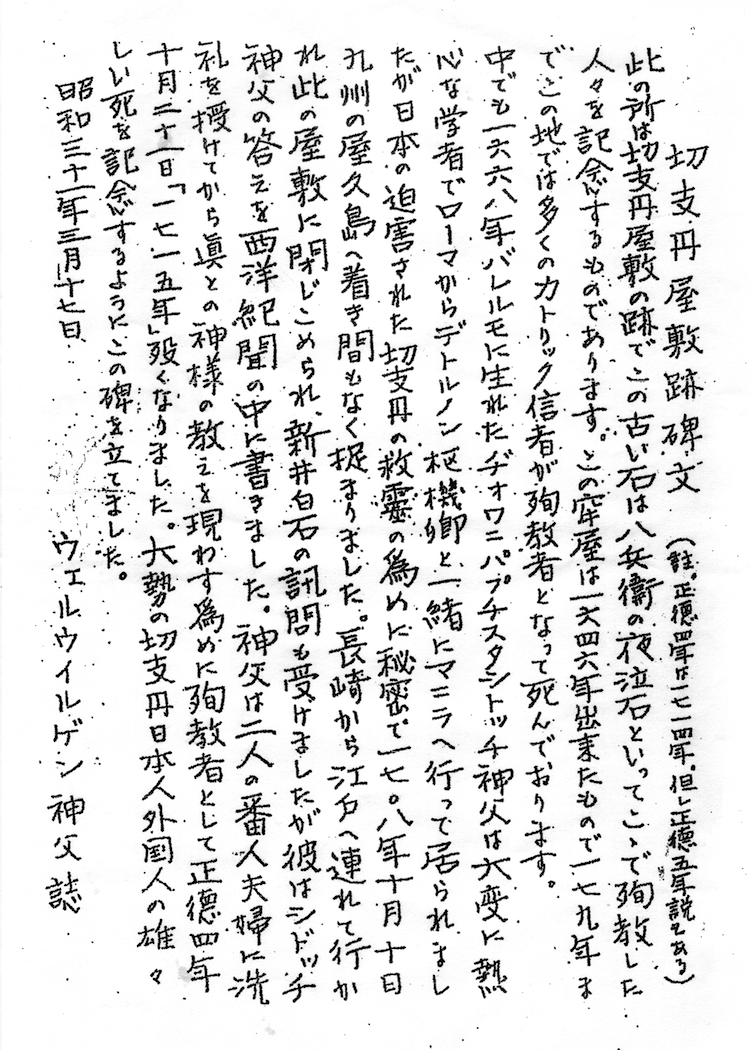 切支丹屋敷跡碑文
(註。正德四年は一七一四年。但し正德五年説もある)
此の所は切支丹屋敷の跡でこの古い石は八兵衞の夜泣石といってこゝで殉教した
人々を記念するものであります。この牢屋は一六四六年出来たもので一七九年ま
でこの地では多くのカトリック信者が殉教者となって死んでおります。
中でも一六六八年パレルモに生れたヂオワニパプチスタシトッチ神父は大変に熱
心な学者でローマからデトルノン枢機卿と一緒にマニラへ行って居られまし
たが日本の迫害された切支丹の救霊の為めに秘密で一七〇八年十月十日
九州の屋久島へ着き間もなく捉まりました。長崎から江戸へ連れて行か
れ此の屋敷に閉じこめられ、新井白石の訊問も受けましたが彼はシドッチ
神父の答えを西洋紀聞の中に書きました。神父は二人の番人夫婦に洗
礼を授けてから眞との神様の教えを現わす為めに殉教者として正德四年
十月二十一日「一七一五年」歿くなりました。大勢の切支丹日本人外国人の雄々
しい死を記念するようにこの碑を立てました。
昭和三十一年三月十七日
ウェルウイルゲン神父誌